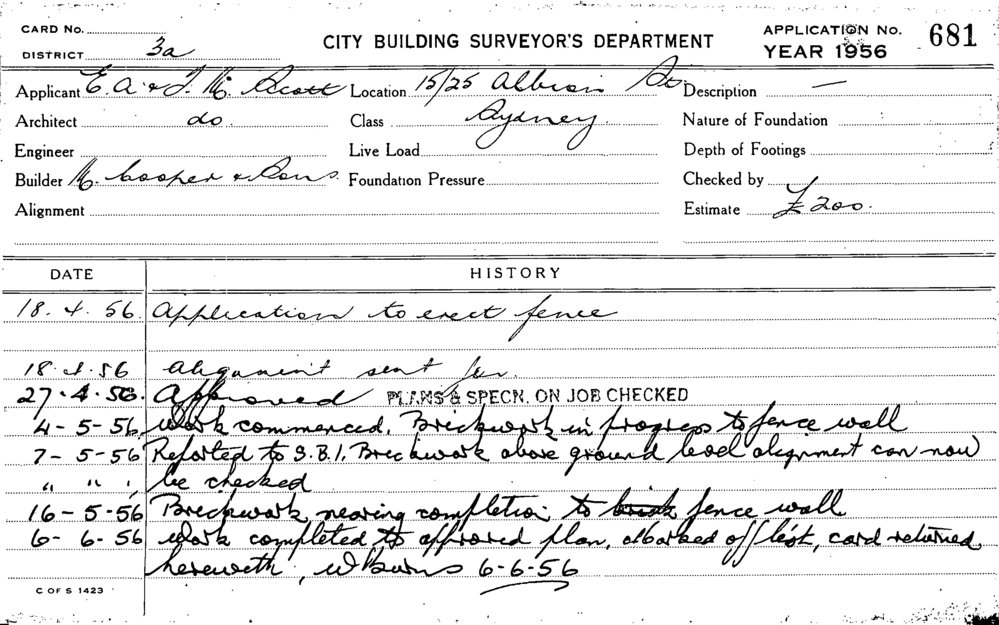 CARD No.
DISTRICT 3a
CITY BUILDING SURVEYOR'S DEPARTMENT
APPLICATION No. 681
YEAR 1956
Applicant E. A. & J. M. Scott Location 15/25 Albion St Description —
Architect do. Class Sydney Nature of Foundation
Engineer Live Load Depth of Footings
Builder M. Cooper & Sons. Foundation Pressure Checked by
Alignment Estimate £200.
DATE HISTORY
18. 4. 56. Application to erect fence
18. 4. 56 Alignment sent for.
27. 4. 56. Approved PLANS & SPECN. ON JOB CHECKED
4-5-56. Work commenced. Brickwork in progress to fence wall
7-5-56 Reported to S.B.I. Brickwork above ground level alignment can now
" " " be checked
16-5-56 Brickwork nearing completion to brick fence wall
6-6-56 Work completed to approved plan. Marked off list, card returned
herewith, W Burns 6-6-56
C OF S 1423